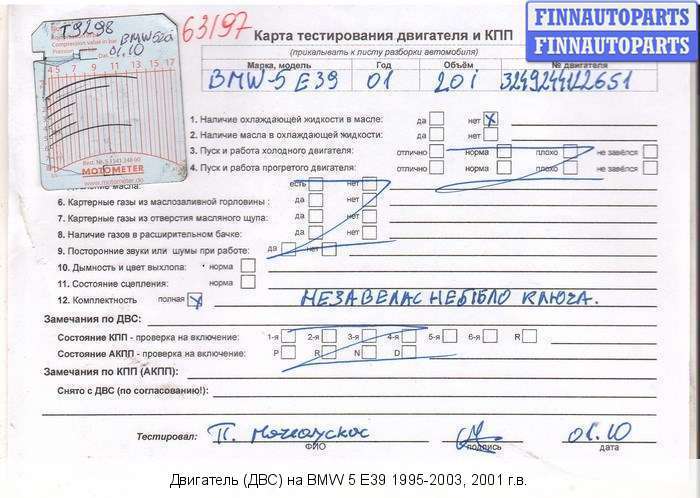 T9298
Compression value in bar
BMW 520i
01.10
4 5 7 9 11 13 15 17
Best. Nr. 5 1 341 248 00
MOTOMETER
www.motometer.de
63/97
FINNAUTOPARTS
FINNAUTOPARTS
Карта тестирования двигателя и КПП
(прикалывать к листу разборки автомобиля)
Марка, модель Год Объём № двигателя
BMW-5 E39 01 20i
1. Наличие охлаждающей жидкости в масле: да нет x
2. Наличие масла в охлаждающей жидкости: да нет
3. Пуск и работа холодного двигателя: отлично норма плохо не завёлся
4. Пуск и работа прогретого двигателя: отлично норма плохо не завёлся
масла: есть нет
6. Картерные газы из маслозаливной горловины : да нет
7. Картерные газы из отверстия масляного щупа: да нет
8. Наличие газов в расширительном бачке: да нет
9. Посторонние звуки или шумы при работе: да нет
10. Дымность и цвет выхлопа: норма
11. Состояние сцепления: норма
12. Комплектность полная x НЕЗАВЕЛАС НЕБЫЛО КЛЮЧА.
Замечания по ДВС:
Состояние КПП - проверка на включение: 1-я 2-я 3-я 4-я 5-я 6-я R
Состояние АКПП - проверка на включение: P R N D
Замечания по КПП (АКПП):
Снято с ДВС (по согласованию!):
Тестировал: П. 01.10
ФИО подпись дата
Двигатель (ДВС) на BMW 5 E39 1995-2003, 2001 г.в.